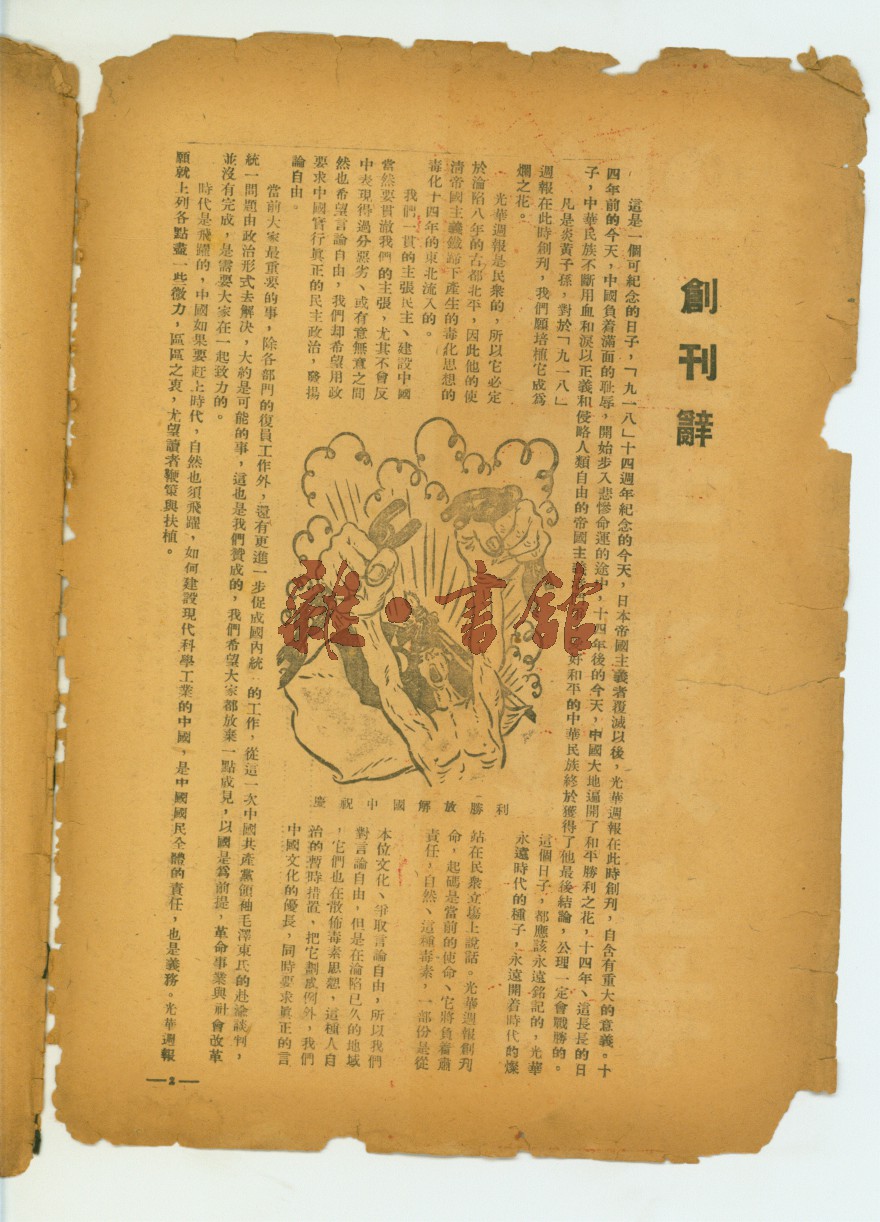 創刊辭
這是一個可紀念的日子，「九一八」十四週年紀念的今天，日本帝國主義者覆滅以後，光華週報在此時創刊，自含有重大的意義。十
四年前的今天，中國負着滿面的耻辱，開始步入悲慘命運的途中，十四年後的今天，中國大地遍開了和平勝利之花，十四年、這長長的日
子，中華民族不斷用血和淚以正義和侵略人類自由的帝國主義 好和平的中華民族終於獲得了他最後結論，公理一定會戰勝的。
凡是炎黃子孫，對於「九一八」
這個日子，都應該永遠銘記的，光華
週報在此時創刊，我們願培植它成爲
永遠時代的種子，永遠開着時代的燦
爛之花。
光華週報是民衆的，所以它必定
站在民衆立場上說話。光華週報創刊
於淪陷八年的古都北平，因此他的使
命，起碼是當前的使命、它將負着肅
清帝國主義鐵蹄下產生的毒化思想的
責任，自然、這種毒素，一部份是從
毒化十四年的東北流入的。
我們一貫的主張民主、建設中國
本位文化、爭取言論自由，所以我們
當然要貫澈我們的主張，尤其不會反
對言論自由，但是在淪陷已久的地域
中表現得過分惡劣、或有意無意之間
，它們也在散佈毒素思想，這種人自
然也希望言論自由，我們却希望用政
治的暫時措置，把它劃成例外，我們
要求中國實行眞正的民主政治，發揚
中國文化的優長，同時要求眞正的言
論自由。
當前大家最重要的事，除各部門的復員工作外，還有更進一步促成國內統 的工作，從這一次中國共產黨領袖毛澤東氏的赴渝談判，
統一問題由政治形式去解決，大約是可能的事，這也是我們贊成的，我們希望大家都放棄一點成見，以國是爲前提，革命事業與社會改革
並沒有完成，是需要大家在一起致力的。
時代是飛躍的，中國如果要赶上時代，自然也須飛躍，如何建設現代科學工業的中國，是中國國民全體的責任，也是義務。光華週報
願就上列各點盡一些微力，區區之衷，尤望讀者鞭策與扶植。
慶祝中國解放勝利
雜·書館
—2—